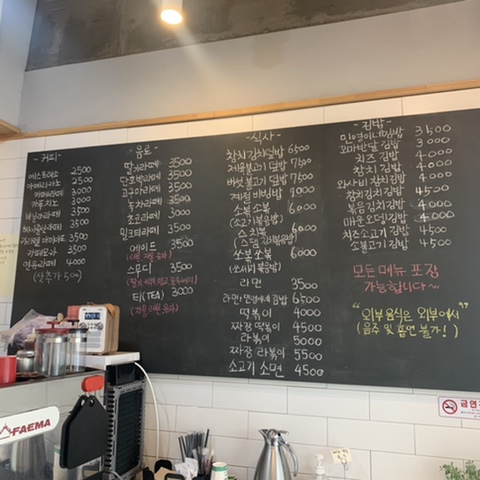 - 커피 -
에스프레소 2500
아메리카노 2500
카페라떼 3000
카푸치노 3000
바닐라라떼 3500
헤이즐넛라떼 3500
카라멜마끼아또 3500
카페모카 3500
연유라떼 4000
(샷추가 500)
- 음료 -
딸기라떼 3500
단호박라떼 3500
고구마라떼 3500
녹차라떼 3500
초코라떼 3000
밀크티라떼 3500
에이드 3500
스무디 3500
티(TEA) 3000
- 식사 -
참치김치덮밥 6500
제육불고기 덮밥 7500
버섯불고기 덮밥 7500
계절 비빔밥 7000
소볶소볶 6000
(소고기볶음밥)
스소볶 6000
쏘볶쏘볶 6000
(쏘세지볶음밥)
라면 3500
라면+ 김밥 6500
떡볶이 4000
짜장 떡볶이 4500
라볶이 5000
짜장 라볶이 5500
소고기 소면 4500
- 김밥 -
김밥 3500
꼬마반달 김밥 3000
치즈 김밥 4000
참치 김밥 4000
와사비 참치김밥 4000
참치김치김밥 4500
볶음김치김밥 4000
매운오뎅김밥 4000
치즈소고기김밥 4500
소불고기 김밥 4500
모든메뉴 포장
가능합니다~
"외부음식은 외부에서"
(음주 및 흡연 불가!)
금연
FAEMA